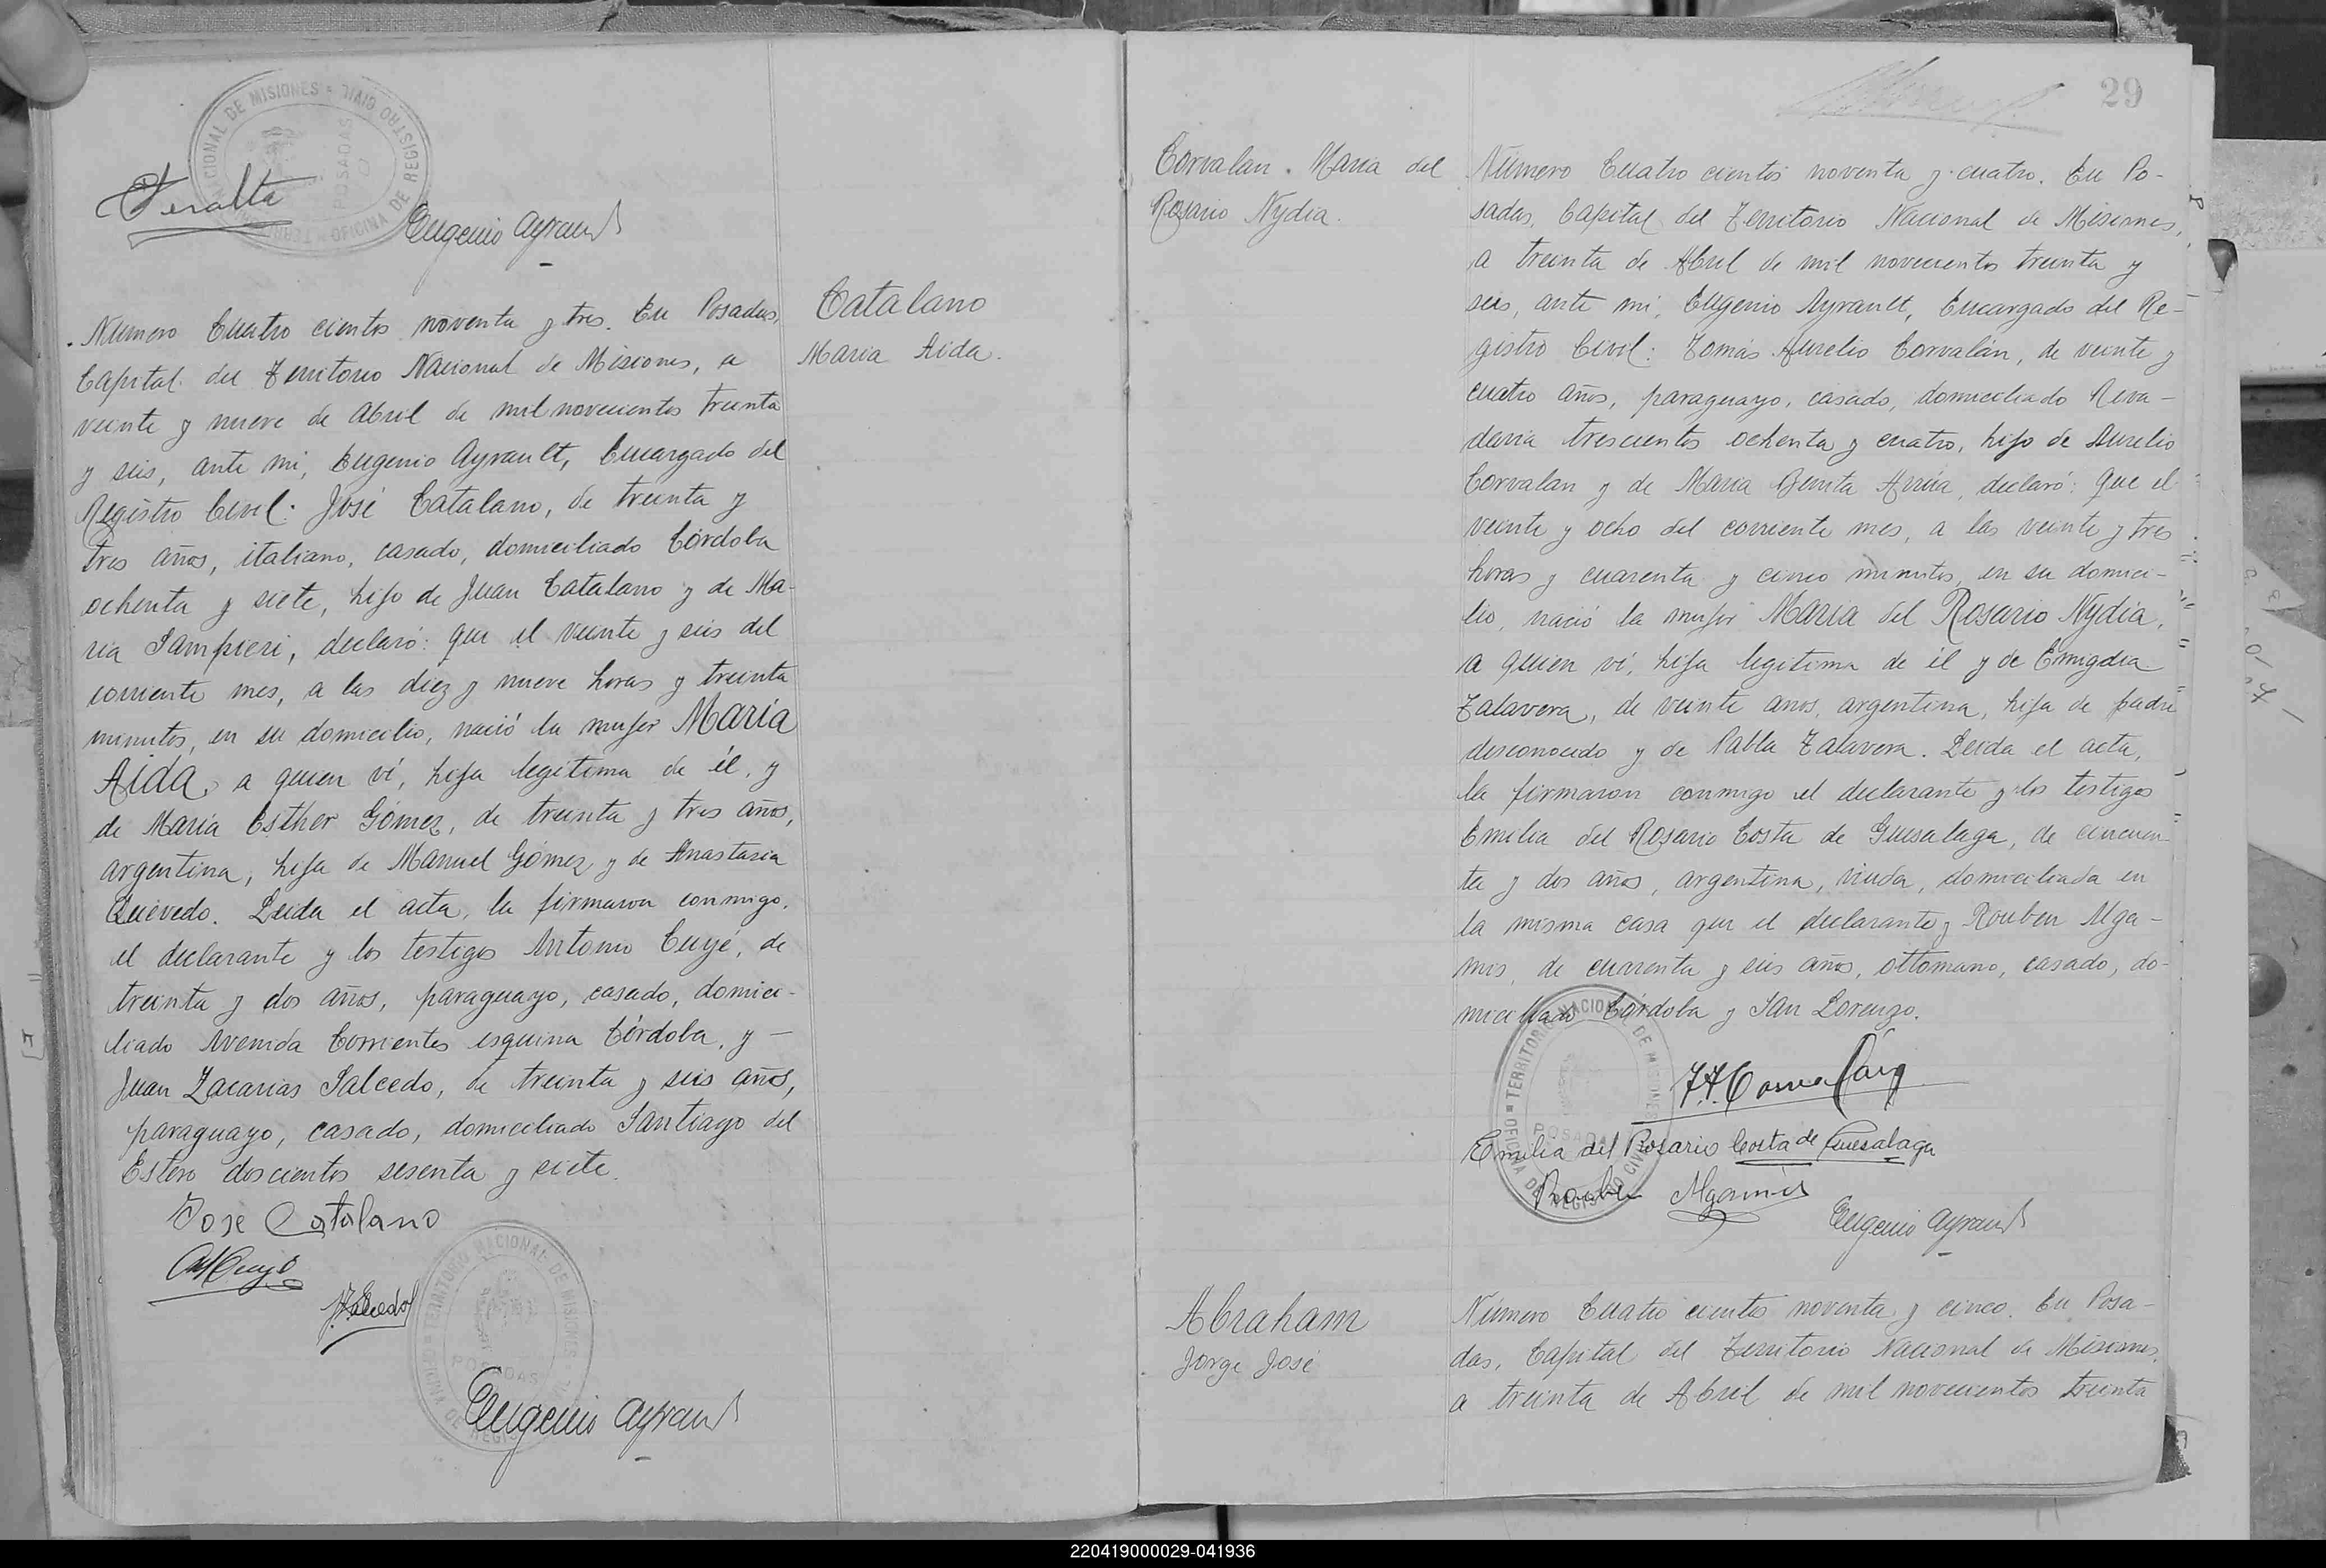 TERRITORIO NACIONAL DE MISIONES
OFICINA DE REGISTRO CIVIL
POSADAS
Peralta
Eugenio Ayrault
Número Cuatro cientos noventa y tres. En Posadas,
Capital del Territorio Nacional de Misiones, a
veinte y nueve de Abril de mil novecientos treinta
y seis, ante mi, Eugenio Ayrault, Encargado del
Registro Civil: José Catalano, de treinta y
tres años, italiano, casado, domiciliado Córdoba
ochenta y siete, hijo de Juan Catalano y de Ma-
ria Sampieri, declaró: que el veinte y seis del
corriente mes, a las diez y nueve horas y treinta
minutos, en su domicilio, nació la mujer María
Aida, a quien ví, hija legítima de él, y
de María Esther Gómez, de treinta y tres años,
argentina, hija de Manuel Gómez y de Anastasia
Quevedo. Leida el acta, la firmaron conmigo,
el declarante y los testigos Antonio Cuyé, de
treinta y dos años, paraguayo, casado, domici-
liado Avenida Corrientes esquina Córdoba, y —
Juan Zacarias Salcedo, de treinta y seis años,
paraguayo, casado, domiciliado Santiago del
Estero doscientos sesenta y siete.
Jose Catalano
JZSalcedo
TERRITORIO NACIONAL DE MISIONES
OFICINA DE REGISTRO CIVIL
POSADAS
Eugenio Ayrault
Catalano
Maria Aida.
29
Corvalan. Maria del
Rosario Nydia.
Número Cuatro cientos noventa y cuatro. En Po-
sadas, Capital del Territorio Nacional de Misiones,
a treinta de Abril de mil novecientos treinta y
seis, ante mi, Eugenio Ayrault, Encargado del Re-
gistro Civil: Tomás Aurelio Corvalán, de veinte y
cuatro años, paraguayo, casado, domiciliado Riva-
davia trescientos ochenta y cuatro, hijo de Aurelio
Corvalan y de Maria Benita Arrúa, declaró: que el
veinte y ocho del corriente mes, a las veinte y tres
horas y cuarenta y cinco minutos, en su domici-
lio, nació la mujer María del Rosario Nydia,
a quien ví, hija legítima de él y de Emigdia
Talavera, de veinte anos, argentina, hija de padre
desconocido y de Pabla Talavera. Leida el acta,
la firmaron conmigo el declarante y los testigos
Emilia del Rosario Costa de Guesalaga, de cincuen-
ta y dos años, argentina, viuda, domiciliada en
la misma casa que el declarante y Rouben Mga-
mis, de cuarenta y seis años, ottomano, casado, do-
miciliado Córdoba y San Lorenzo.
TERRITORIO NACIONAL DE MISIONES
OFICINA DE REGISTRO CIVIL
POSADAS
Emilia del Rosario Costa de Guesalaga
Eugenio Ayrault
Abraham
Jorge José
Número Cuatro cientos noventa y cinco. En Posa-
das, Capital del Territorio Nacional de Misiones,
a treinta de Abril de mil novecientos treinta
220419000029-041936